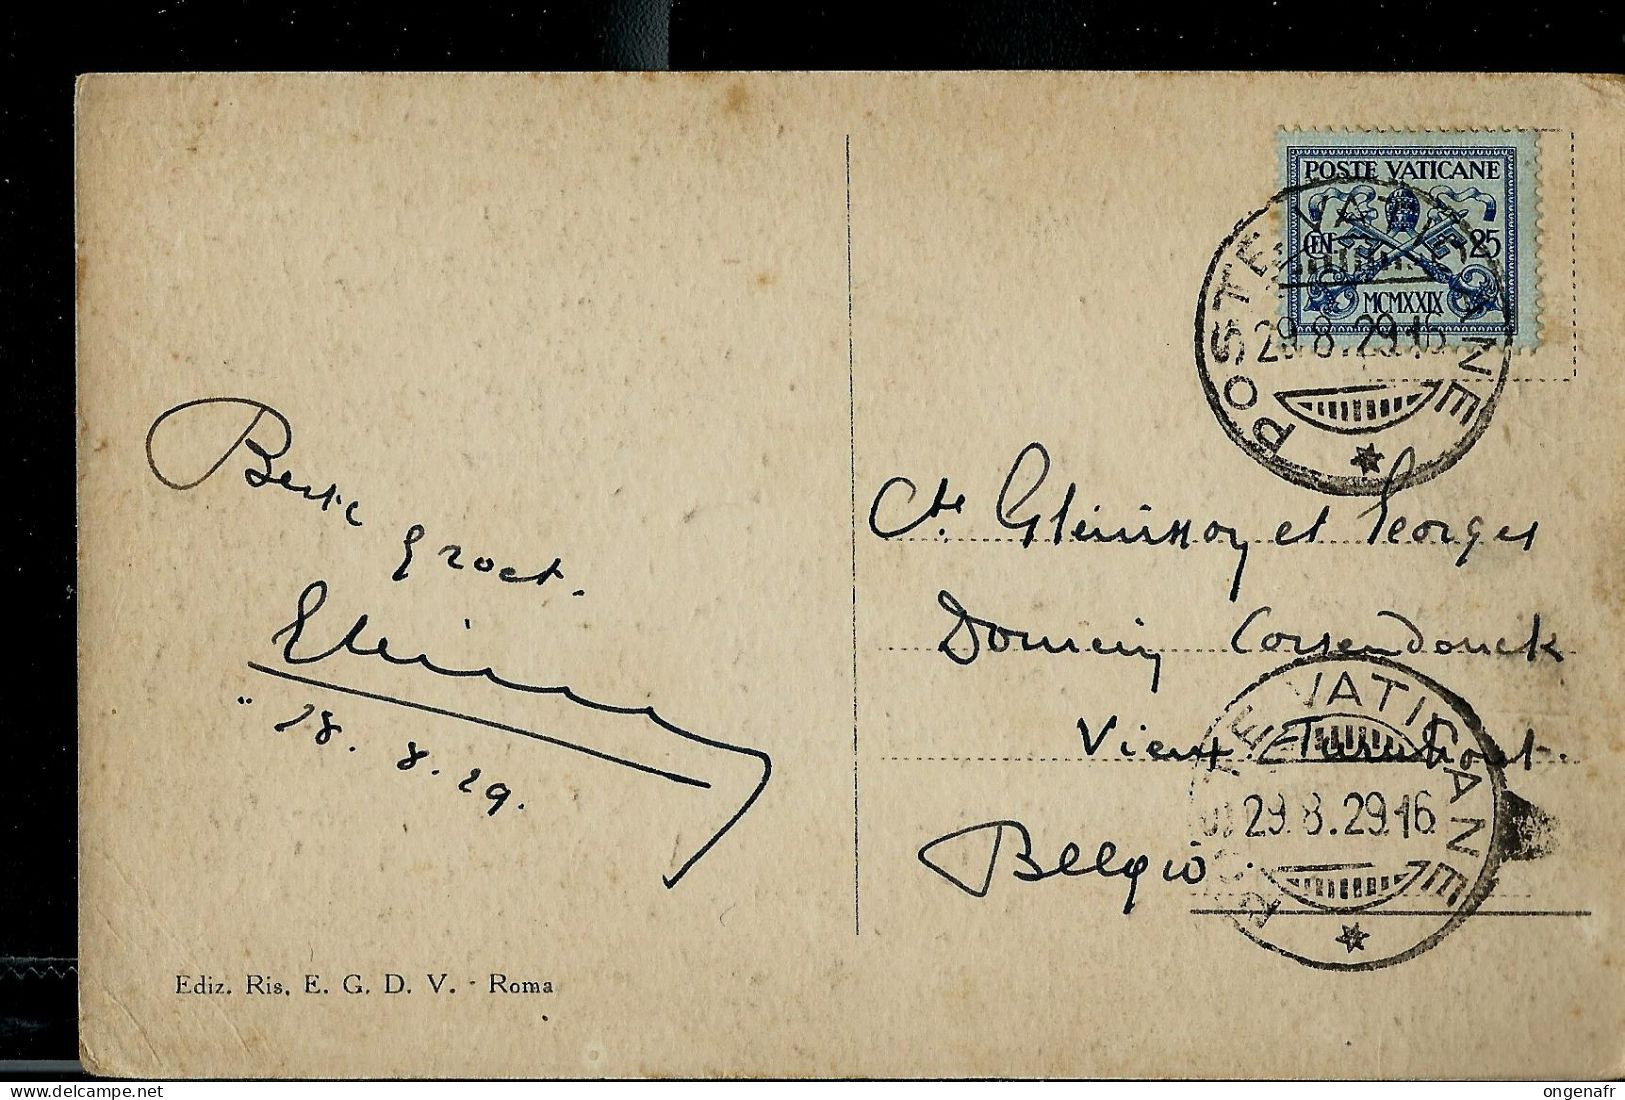 POSTE VATICANE
CEN 25
MCMXXIX
POSTE VATICANE
29.8.29.16
Beste
groet.
18.8.29.
Cte et Georges
Domein Corsendonck
Vieux-Turnhout.
Belgio
POSTE VATICANE
29.8.29.16
Ediz. Ris. E. G. D. V. - Roma
delcampe.net
ongenafr